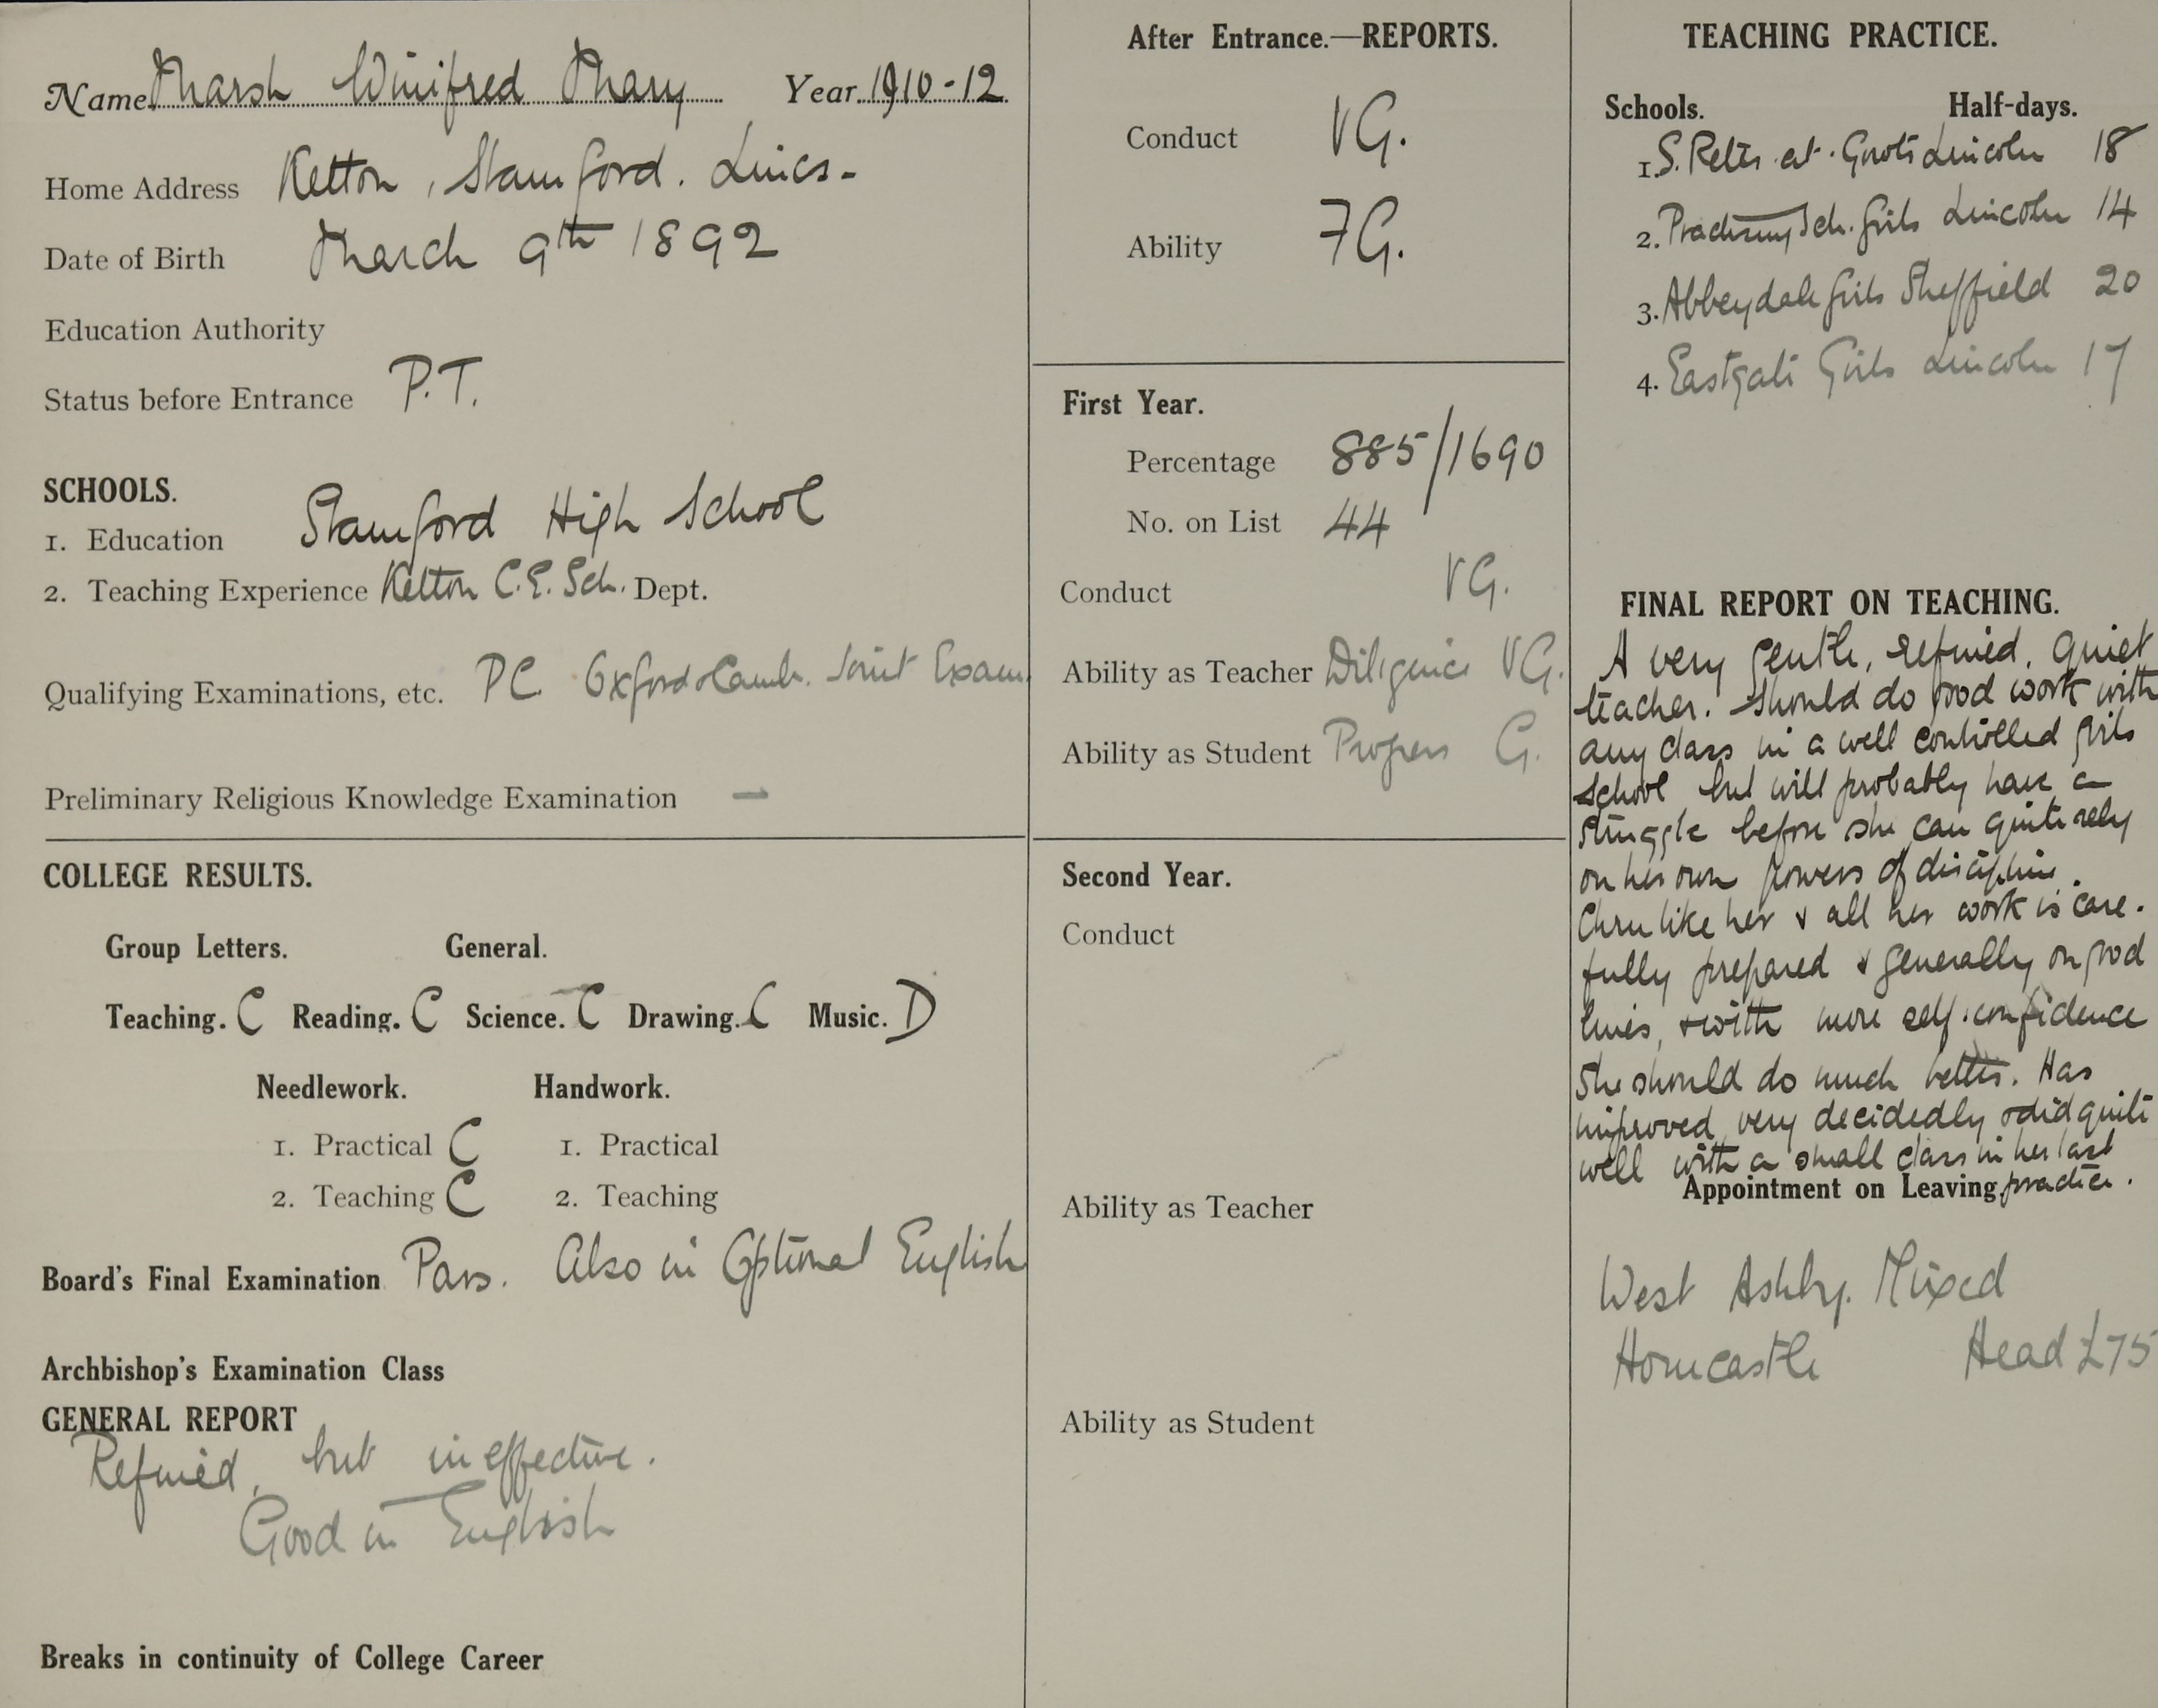 Name Marsh Winifred Mary Year 1910-12
Home Address Ketton, Stamford. Lincs-
Date of Birth March 9th 1892
Education Authority
Status before Entrance P.T.
SCHOOLS.
1. Education Stamford High School
2. Teaching Experience Ketton C.E. Sch. Dept.
Qualifying Examinations, etc. PC Oxford & Camb. Joint Exam
Preliminary Religious Knowledge Examination —
COLLEGE RESULTS.
Group Letters. General.
Teaching. C Reading. C Science. C Drawing. C Music. D
Needlework. Handwork.
1. Practical C 1. Practical
2. Teaching C 2. Teaching
Board's Final Examination Pass. Also in Optional English
Archbishop's Examination Class
GENERAL REPORT
Refined, but ineffective.
Good in English
Breaks in continuity of College Career
After Entrance.—REPORTS.
Conduct VG.
Ability FG.
First Year.
Percentage 885/1690
No. on List 44
Conduct VG.
Ability as Teacher Diligence VG.
Ability as Student Progress G.
Second Year.
Conduct
Ability as Teacher
Ability as Student
TEACHING PRACTICE.
Schools. Half-days.
1. S. Peters at Gowts Lincoln 18
2. Practising Sch. Girls Lincoln 14
3. Abbeydale Girls Sheffield 20
4. Eastgate Girls Lincoln 17
FINAL REPORT ON TEACHING.
A very gentle, refined, quiet
teacher. Should do good work with
any class in a well controlled girls
school, but will probably have a
struggle before she can quite rely
on her own powers of discipline.
Chn like her & all her work is care-
fully prepared & generally on good
lines, & with more self-confidence
she should do much better. Has
improved very decidedly & did quite
well with a small class in her last
practice.
Appointment on Leaving
West Ashby. Mixed
Horncastle Head £75